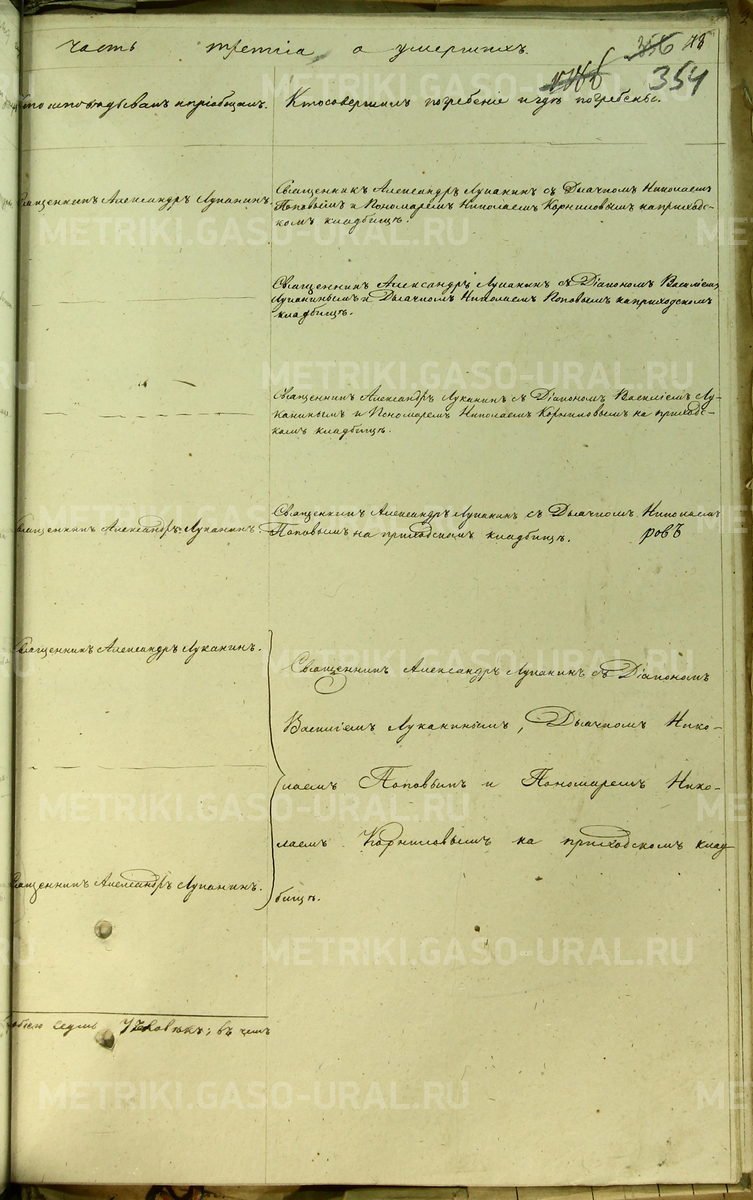 часть третія о умершихъ.
356 78
354
Кто исповѣдывалъ и пріобщалъ.
Кто совершилъ погребеніе и гдѣ погребены.
Священникъ Александръ Луканинъ.
Священникъ Александръ Луканинъ съ Дьячкомъ Николаемъ
Поповымъ и Пономаремъ Николаемъ Корниловымъ на приходс-
комъ кладбищѣ.
Священникъ Александръ Луканинъ съ Діакономъ Василіемъ
Луканинымъ и Дьячкомъ Николаемъ Поповымъ на приходскомъ
кладбищѣ.
Священникъ Александръ Луканинъ съ Діакономъ Василіемъ Лу-
канинымъ и Пономаремъ Николаемъ Корниловымъ на приходс-
комъ кладбищѣ.
Священникъ Александръ Луканинъ.
Священникъ Александръ Луканинъ съ Дьячкомъ Николаемъ
Поповымъ на приходскомъ кладбищѣ.
ровъ
Священникъ Александръ Луканинъ.
Священникъ Александръ Луканинъ съ Діакономъ
Василіемъ Луканинымъ, Дьячкомъ Нико-
лаемъ Поповымъ и Пономаремъ Нико-
лаемъ Корниловымъ на приходскомъ клад-
бищѣ.
Священникъ Александръ Луканинъ.
седмь Человѣкъ; въ чемъ
METRIKI.GASO-URAL.RU
METRIKI.GASO-URAL.RU
METRIKI.GASO-URAL.RU
METRIKI.GASO-URAL.RU
METRIKI.GASO-URAL.RU
METRIKI.GASO-URAL.RU
METRIKI.GASO-URAL.RU
METRIKI.GASO-URAL.RU